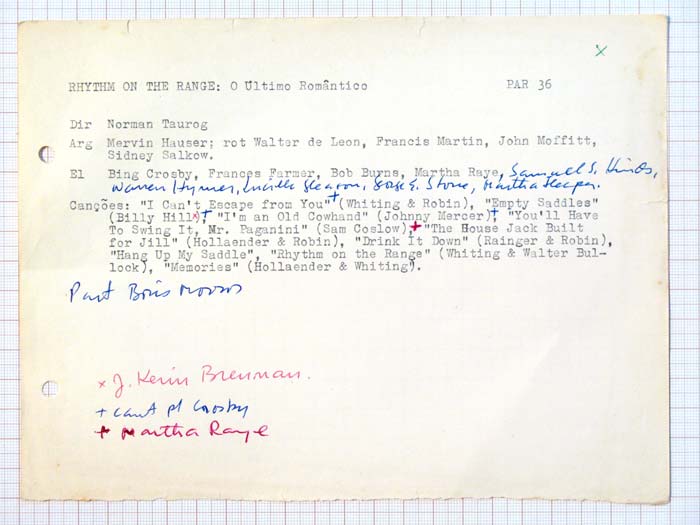 x
RHYTHM ON THE RANGE: O Último Romântico PAR 36
Dir Norman Taurog
Arg Mervin Hauser; rot Walter de Leon, Francis Martin, John Moffitt,
Sidney Salkow.
El Bing Crosby, Frances Farmer, Bob Burns, Martha Raye, Samuel S. Hinds,
Warren Hymer, Lucille Gleason, George E. Stone, Martha Sleeper.
Canções: "I Can't Escape from You"+ (Whiting & Robin), "Empty Saddles"
(Billy Hillx)+, "I'm an Old Cowhand" (Johnny Mercer)+, "You'll Have
To Swing It, Mr. Paganini" (Sam Coslow),+ "The House Jack Built
for Jill" (Hollaender & Robin), "Drink It Down" (Rainger & Robin),
"Hang Up My Saddle", "Rhythm on the Range" (Whiting & Walter Bul-
lock), "Memories" (Hollaender & Whiting).
Part Boris Morros
x J. Kerin Brennan.
+ cant pl Crosby
+ Martha Raye